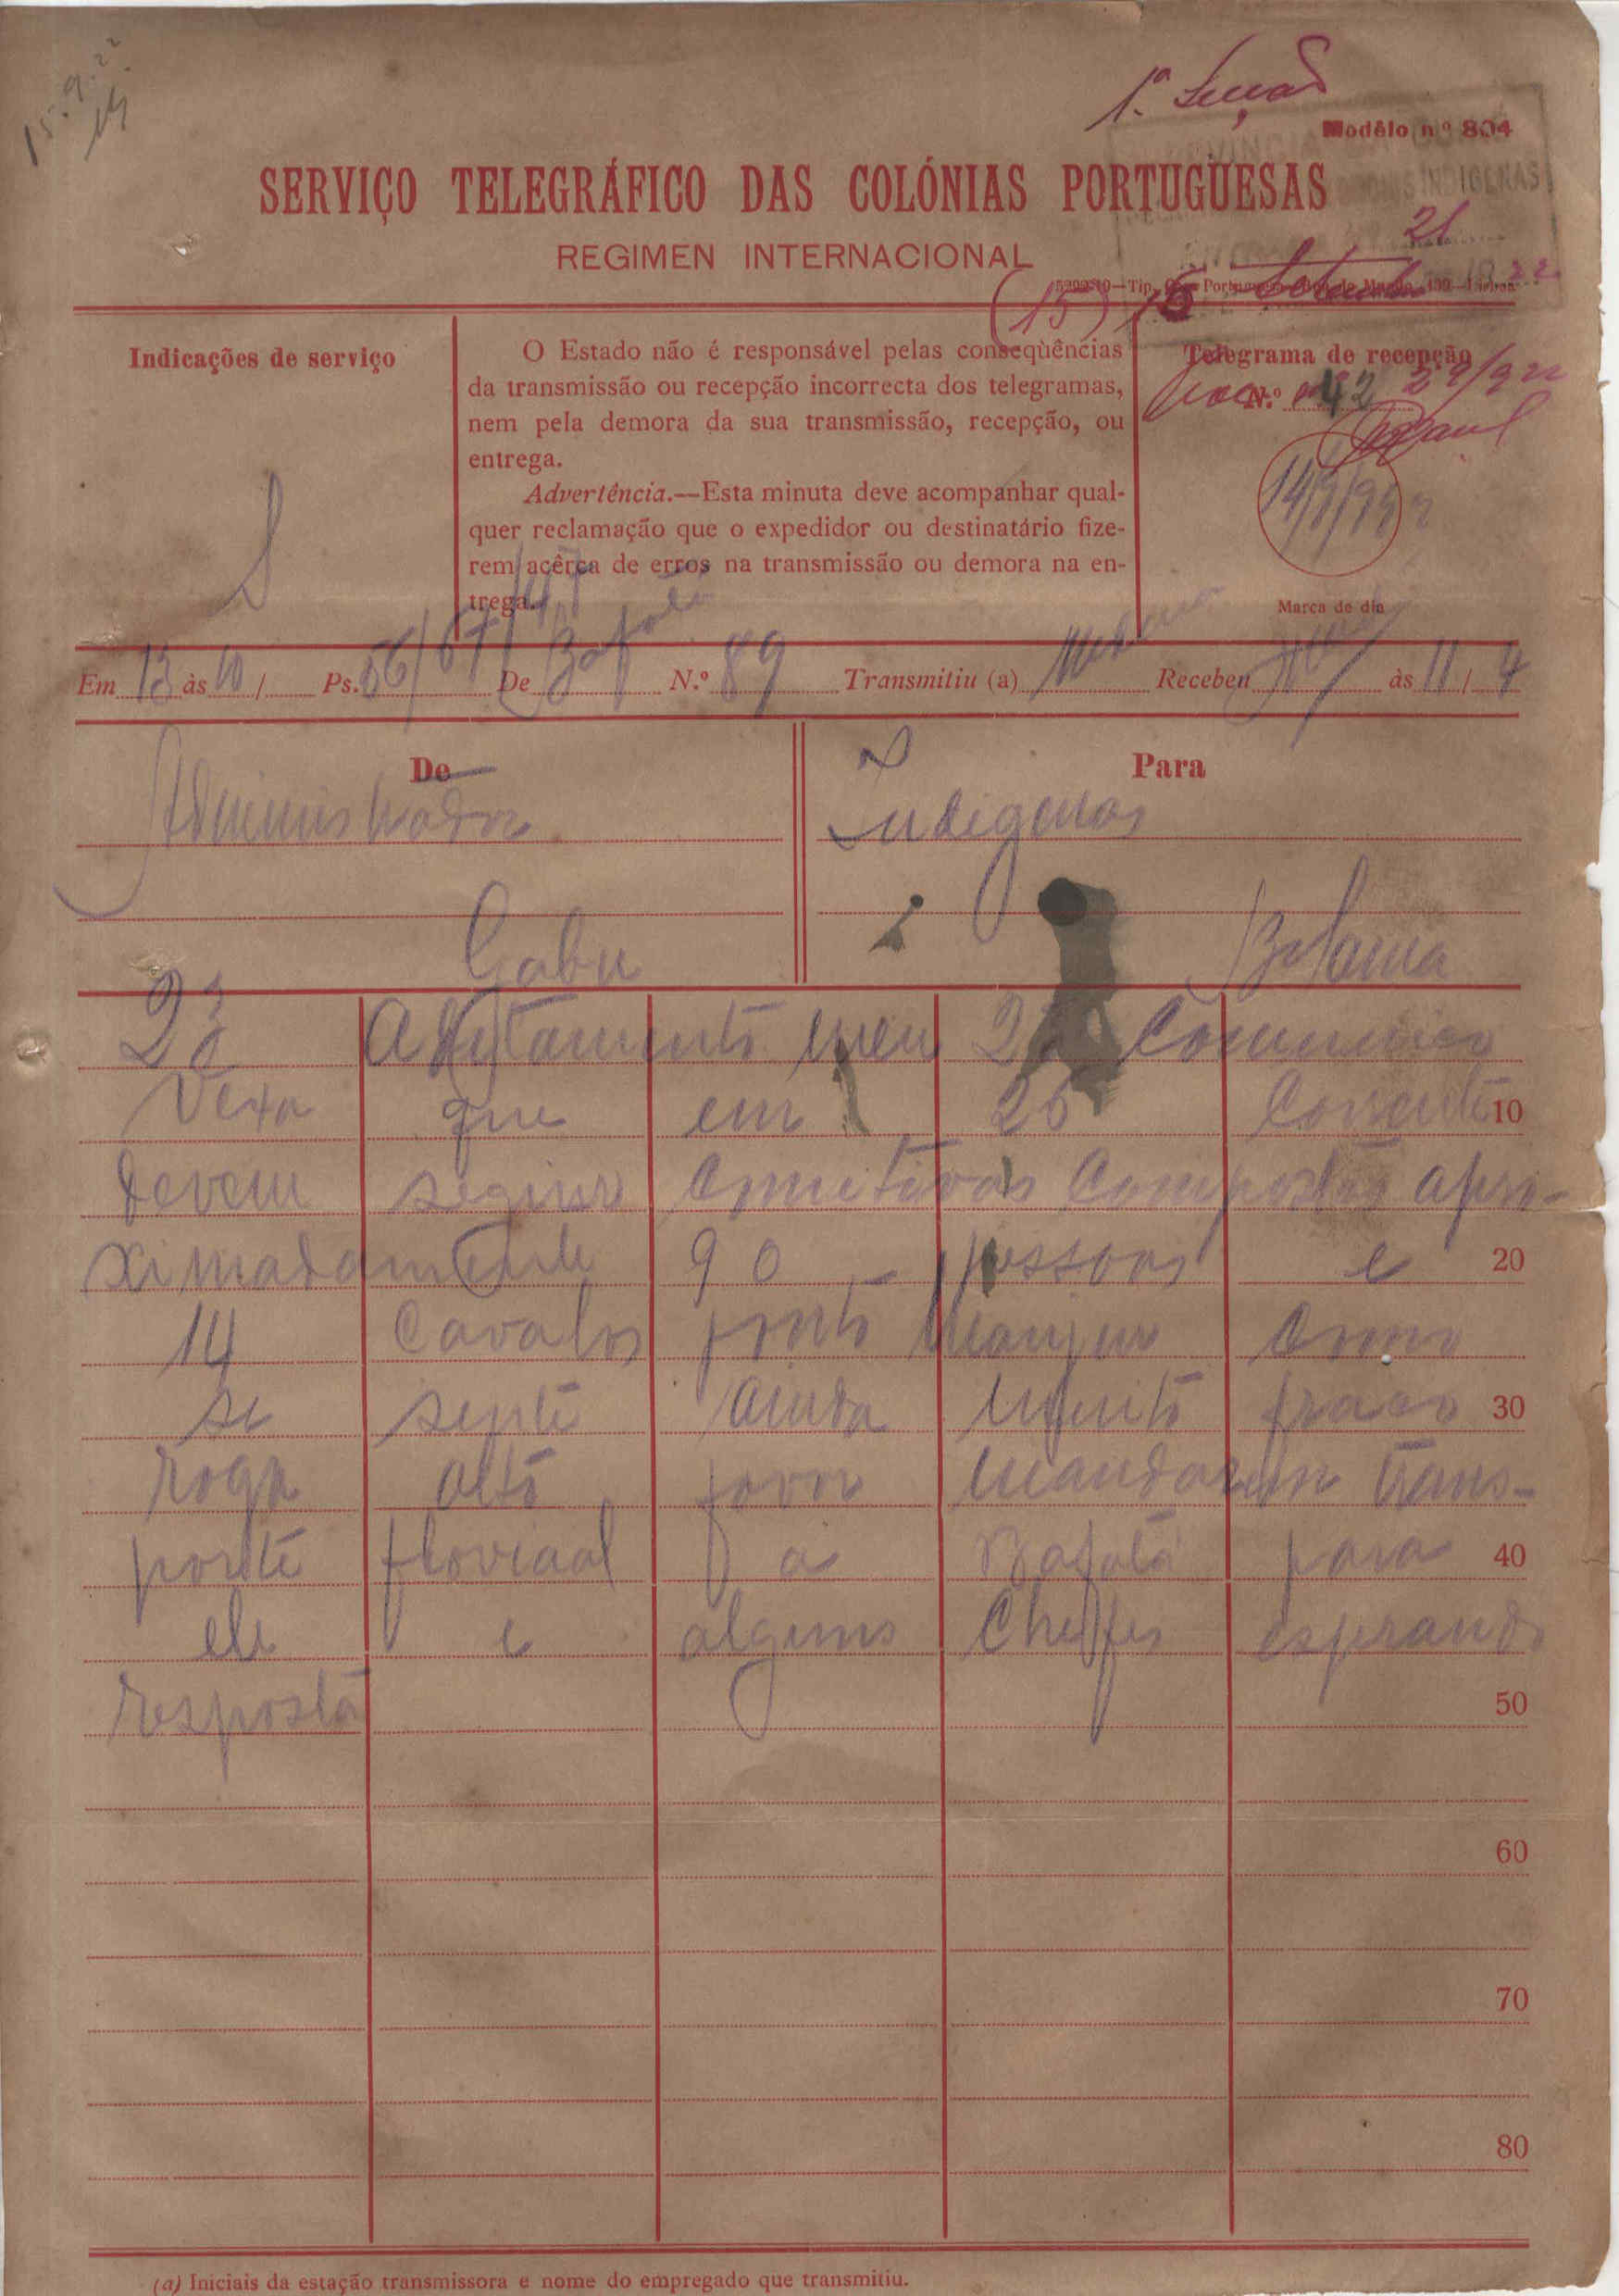 15.9.22
1.ª Secção
Modêlo n.º 804
PROVINCIA DA GUINÉ
INDIGENAS
SERVIÇO TELEGRÁFICO DAS COLÓNIAS PORTUGUESAS
REGIMEN INTERNACIONAL
21
(15) 15 Setembro 22
Indicações de serviço
S
O Estado não é responsável pelas conseqùências
da transmissão ou recepção incorrecta dos telegramas,
nem pela demora da sua transmissão, recepção, ou
entrega.
Advertência.—Esta minuta deve acompanhar qual-
quer reclamação que o expedidor ou destinatário fize-
rem acêrca de erros na transmissão ou demora na en-
trega.
Telegrama de recepção
N.º 42
14/9/922
Marca do dia
Em 13 às 10 / Ps. 56/67/47 De Bafatá N.º 89 Transmitiu (a) Recebeu às 11 / 4
De
Administrador
Gabu
Para
Indigenas
Bolama
2ª aditamento meu Comunico
Vexa que em 25 Corrente 10
devem seguir Comitivas Compostas apro-
ximadamente 90 - pessoas e 20
14 Cavalos ponto Como
se sente ainda muito fraco 30
roga alto favor mandarem trans-
porte floviaal a Bafatá para 40
ele e alguns Cheffes esperando
resposta 50
60
70
80
(a) Iniciais da estação transmissora e nome do empregado que transmitiu.